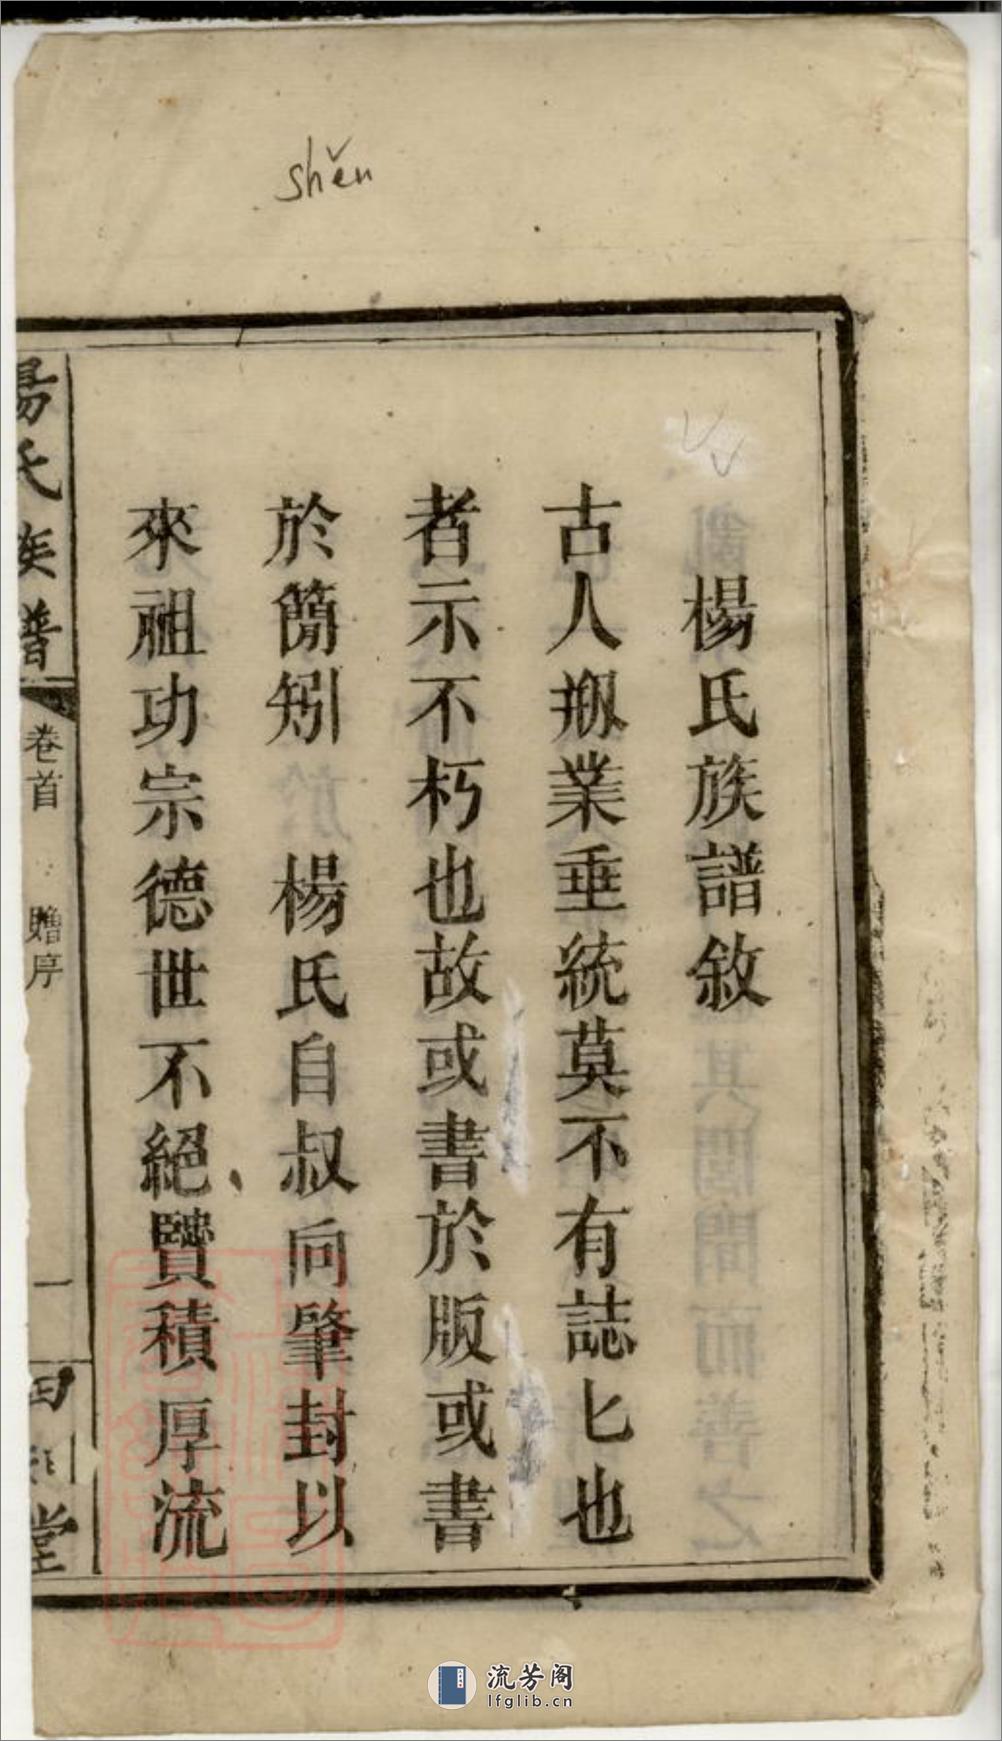 shěn
楊氏族譜敘
古人刱業垂統莫不有誌匕也
者示不朽也故或書於版或書
於簡矧 楊氏自叔向肇封以
來祖功宗德世不絕贒積厚流
楊氏族譜
卷首 贈序
一
堂
流芳阁
lfglib.cn